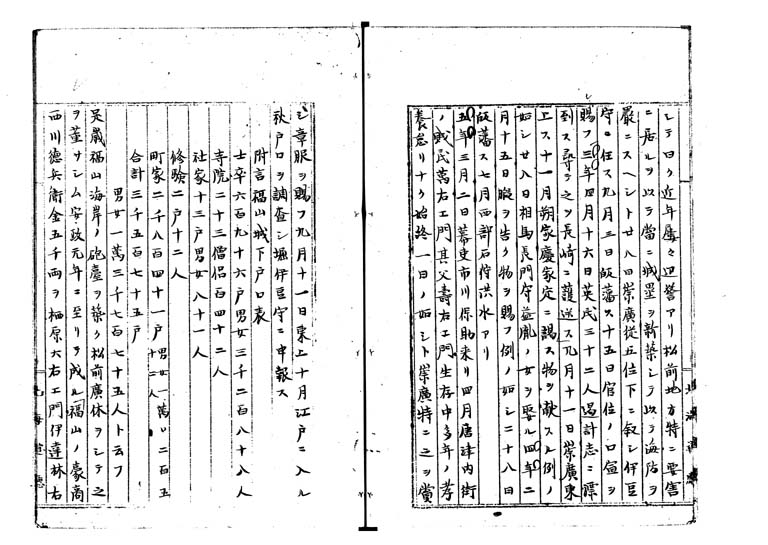 シテ曰ク近年屡々辺警アリ松前地方特ニ要害
ニ居ルヲ以テ當ニ城塁ヲ新築シテ以テ海防ヲ
嚴ニスヘシト廿八日崇廣從五位下ニ叙シ伊豆
守ニ任ス九月三日皈藩ス十五日官位ノ口宣ヲ
賜フ三年四月十六日英氏三十二人過計志ニ漂
到ス尋テ之ヲ長崎ニ護送ス九月十一日崇廣東
上ス十一月朔家慶家定ニ謁ス物ヲ献スル例ノ
如シ廿八日相馬長門守益胤ノ女ヲ娶ル四年二
月十五日暇ヲ告ク物ヲ賜フ例ノ如シ二十八日
皈藩ス七月西部石狩洪水アリ
五年三月二日幕吏市川保助来リ四月唐津内街
ノ賊民萬右エ門其父壽右エ門生存中多年ノ孝
養怠リナク始終一日ノ如シト崇廣特ニ之ヲ賞
シ章服ヲ賜フ九月十一日東上十月江戸ニ入ル
秋戸口ヲ調査シ堀伊豆守ニ申報ス
附言福山城下戸口表
士卒六百九十六戸男女三千二百八十八人
寺院二十三僧侶百四十二人
社家十三戸男女八十一人
修驗二戸十二人
町家二千八百四十一戸 男女一萬〇二百五十二人
合計三千五百七十五戸
男女一萬三千七百七十五人ト云フ
是歳福山海岸ノ砲臺ヲ築ク松前廣休ヲシテ之
ヲ董サシム安政元年ニ至リテ成ル福山ノ豪商
西川德兵衛金五千両ヲ栖原六右エ門伊達林右